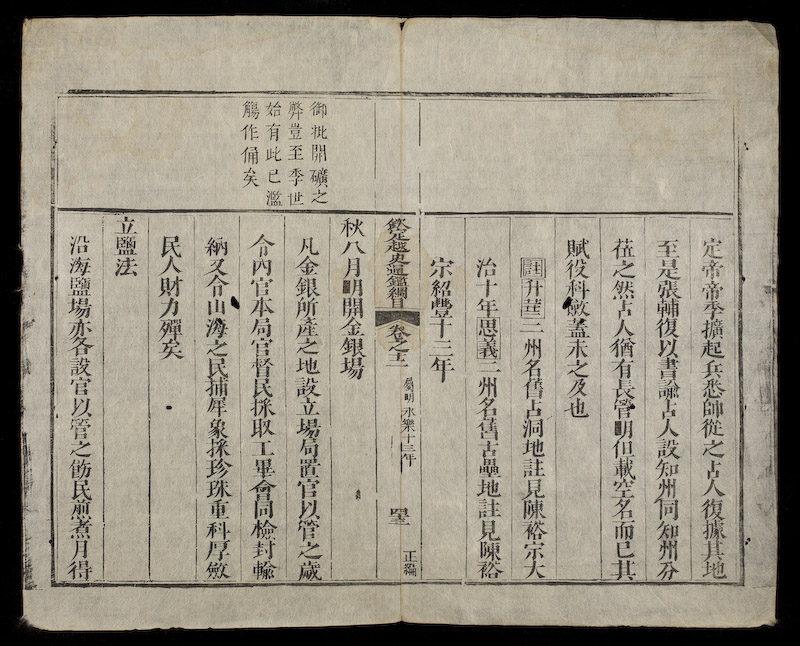 定帝帝季擴起兵悉帥從之占人復據其地
至是張輔復以書諭占人設知州同知州分
莅之然占人猶有長管明但載空名而已其
賦役科斂蓋未之及也
註升華二州名舊占洞地註見陳裕宗大
治十年思義二州名舊占壘地註見陳裕
宗紹豐十三年
欽定越史通鑑綱目 卷之十二 屬明永樂十三年 正編
御批開礦之
弊豈至季世
始有此已濫
觴作俑矣
秋八月明開金銀場
凡金銀所產之地設立場局置官以管之歲
令內官本局官督民採取工畢會同檢封輸
納又令山海之民捕犀象採珍珠重科厚斂
民人財力殫矣
立鹽法
沿海鹽場亦各設官以管之飭民煎煮月得